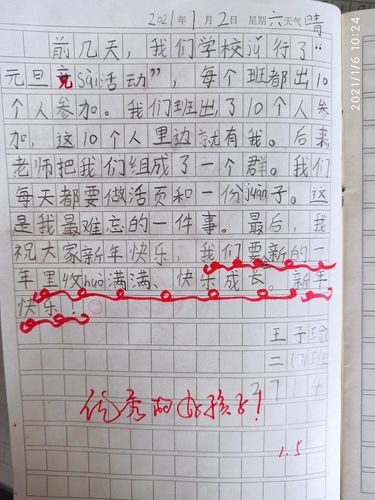 2021年1月2日 星期六天气晴
前几天，我们学校jǔ行了“
元旦竞sài活动”，每个班都出10
个人参加。我们班出了10个人参
加，这10个人里边就有我。后来
老师把我们组成了一个群。我们
每天都要做活页和一份juàn子。这
是我最难忘的一件事。最后，我
祝大家新年快乐，我们要新的一
年里收huò满满、快乐成长。新年
快乐！
王子瑜
二（7）班
37 4
优秀的好孩子！
1.5
2021/1/6 10:24